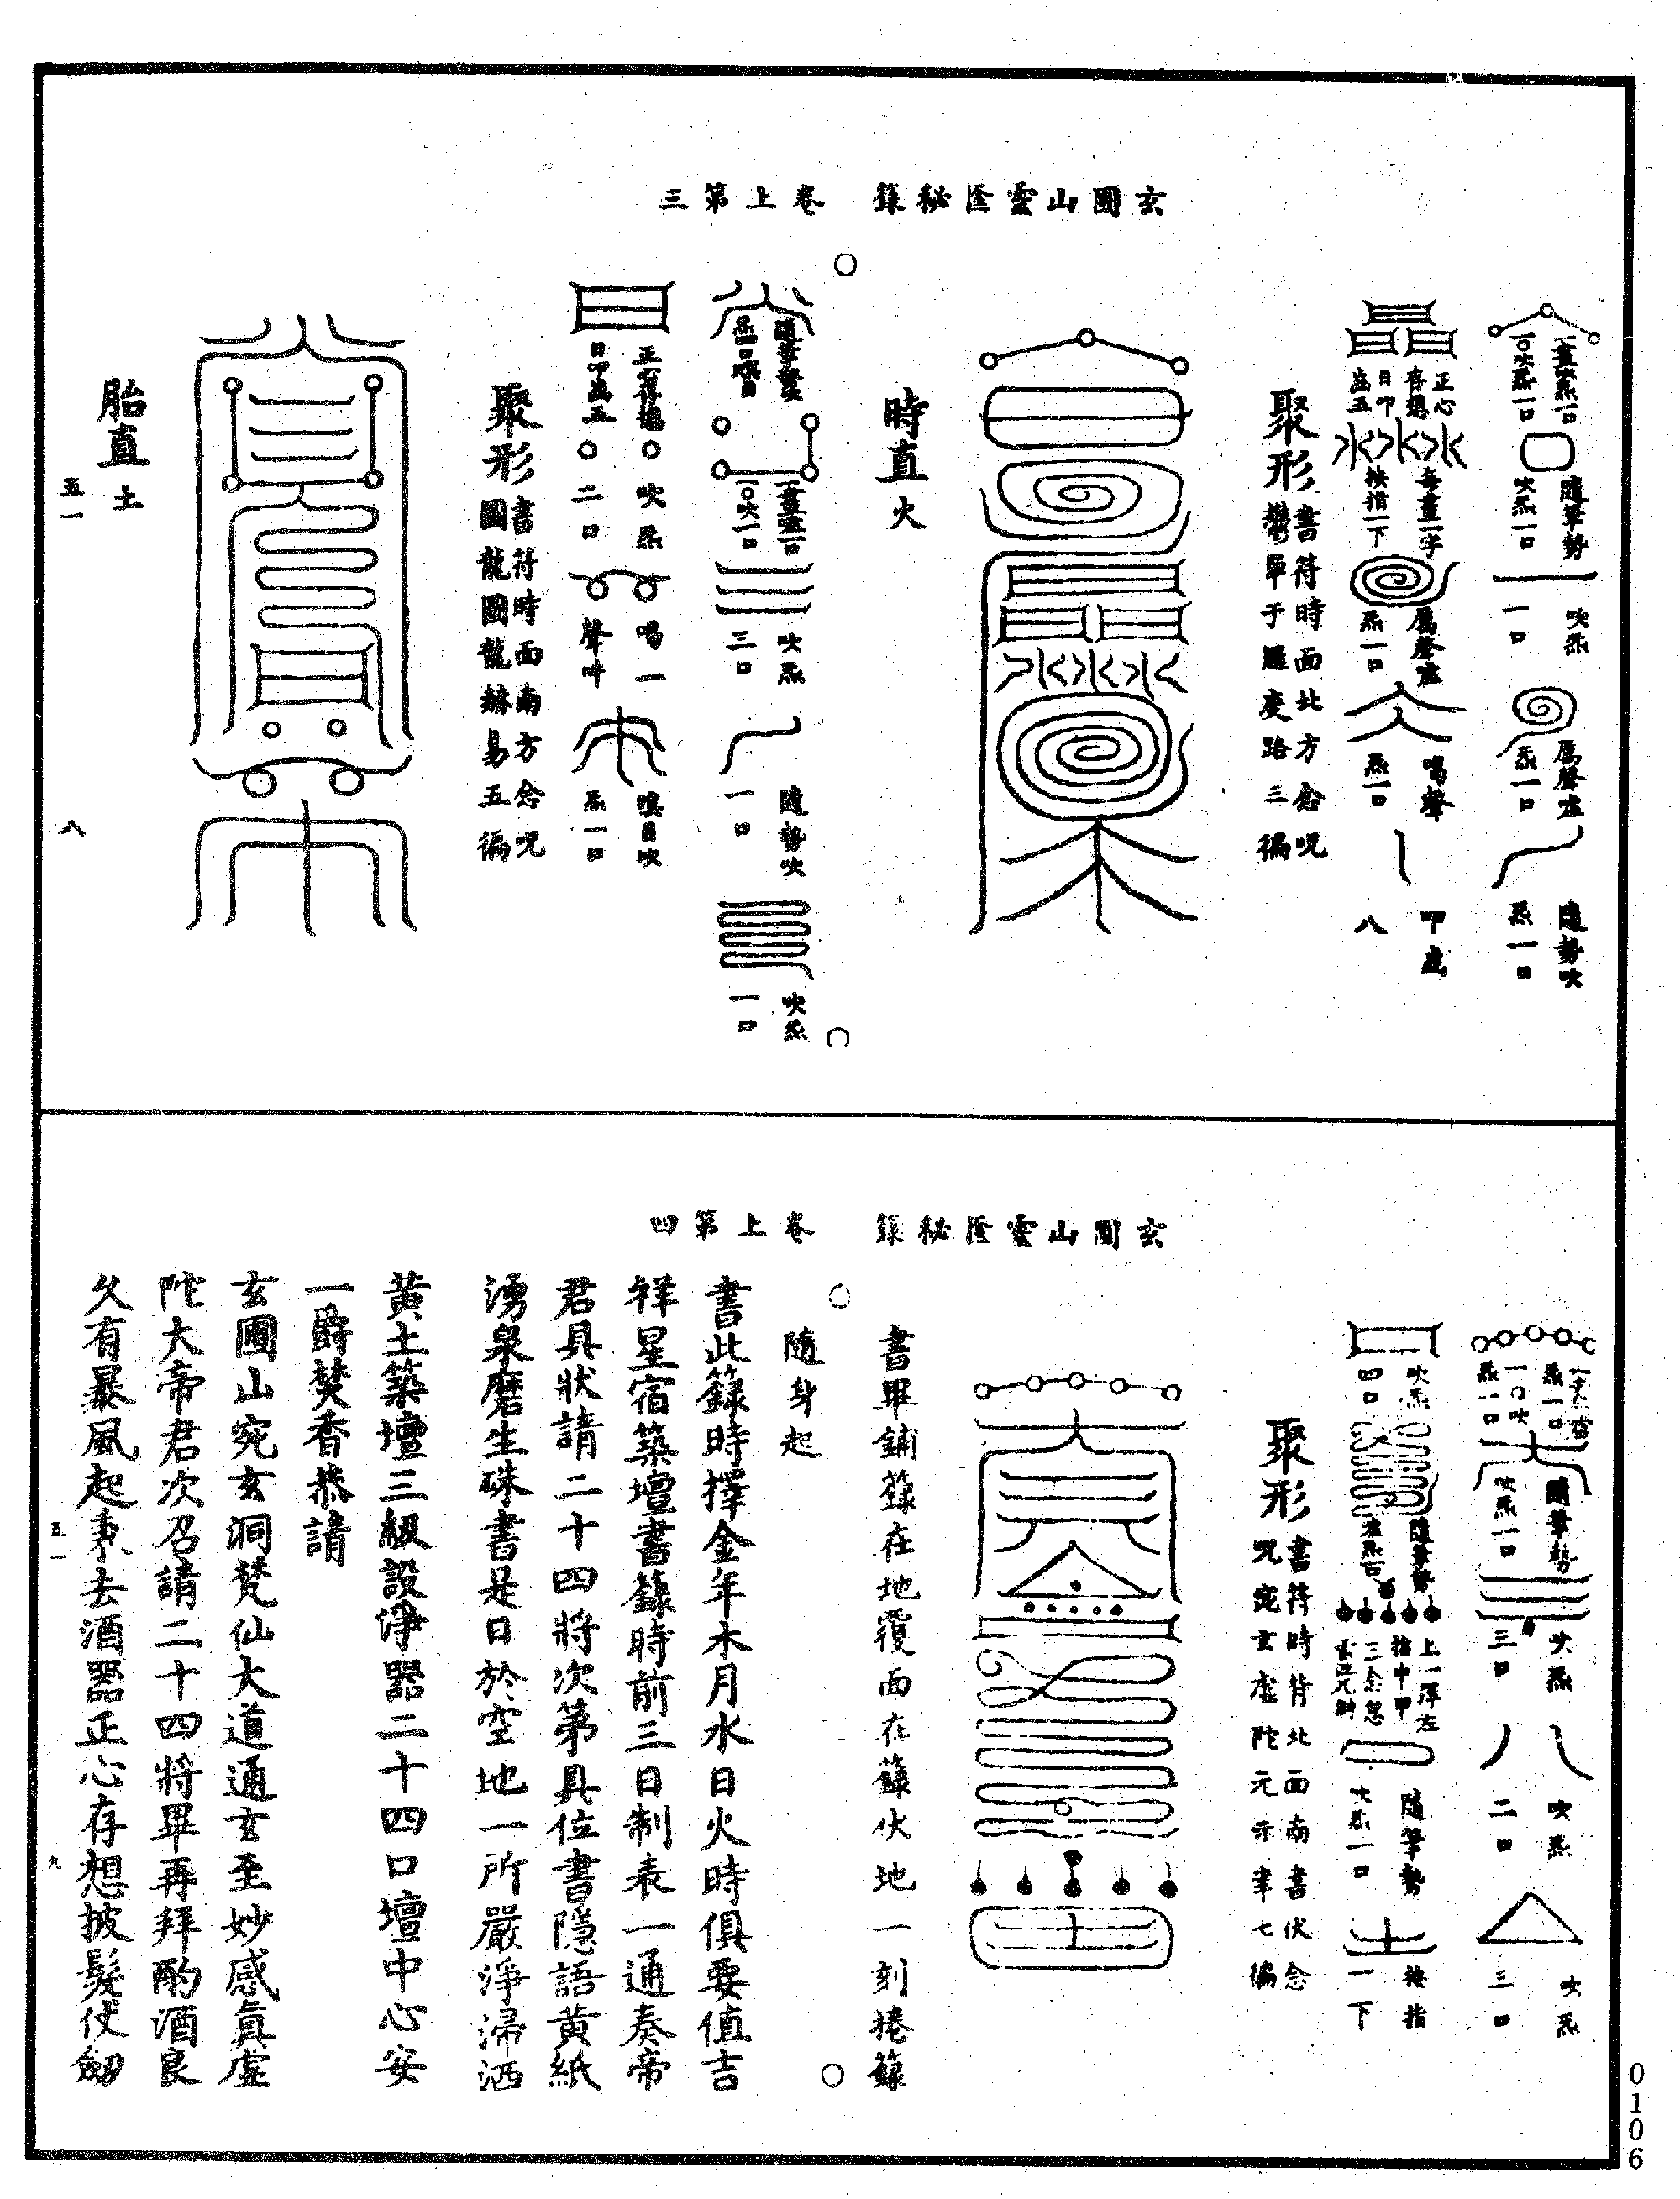 玄圃山靈匱秘籙 卷上第三
一畫炁一口
一○吹炁一口
隨筆勢
吹炁一口
吹炁
一口
厲聲噓
炁一口
隨勢吹
炁一口
正心
存想
日叩
齒五
每畫一字
按指一下
厲聲噓
炁一口
喝聲
炁一口
叩齒
八
聚形
書符時面北方念呪
鬱單于羅度路三徧
時直火
隨筆勢
一○吹一口
吹炁
三口
隨勢吹
一口
吹炁
一口
正存想
吹炁
二口
喝一
聲吽
嗔目吹
炁一口
聚形
書符時面南方念呪
圖龍圖龍赫易五徧
胎直土
五一
八
玄圃山靈匱秘籙 卷上第四
炁一口
一○吹
炁一口
隨筆勢
吹炁一口
吹炁
三口
吹炁
二口
吹炁
三口
吹炁
四口
隨筆勢
上一渾左
指中甲
隨筆勢
吹炁一口
按指
一下
聚形
書符時背北面南書伏念
呪宛玄虛陀元示聿七徧
書畢鋪籙在地覆面在籙伏地一刻捲籙
隨身起
書此籙時擇金年木月水日火時俱要值吉
祥星宿築壇書籙時前三日制表一通奏帝
君具狀請二十四將次第具位書隱語黃紙
湧泉磨生硃書是日於空地一所嚴淨掃洒
黃土築壇三級設淨器二十四口壇中心安
一爵焚香恭請
玄圃山宛玄洞梵仙大道通玄至妙感真虛
陀大帝君次召請二十四將畢再拜酌酒良
久有暴風起東去酒器正心存想披髮仗劒
五一
九
0106